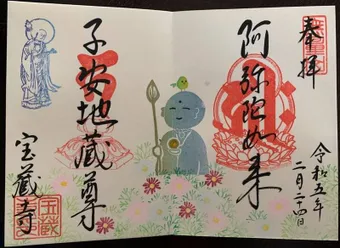 奉拝
令和五年
二月二十四日
阿弥陀如来
子安地蔵尊
宝蔵寺